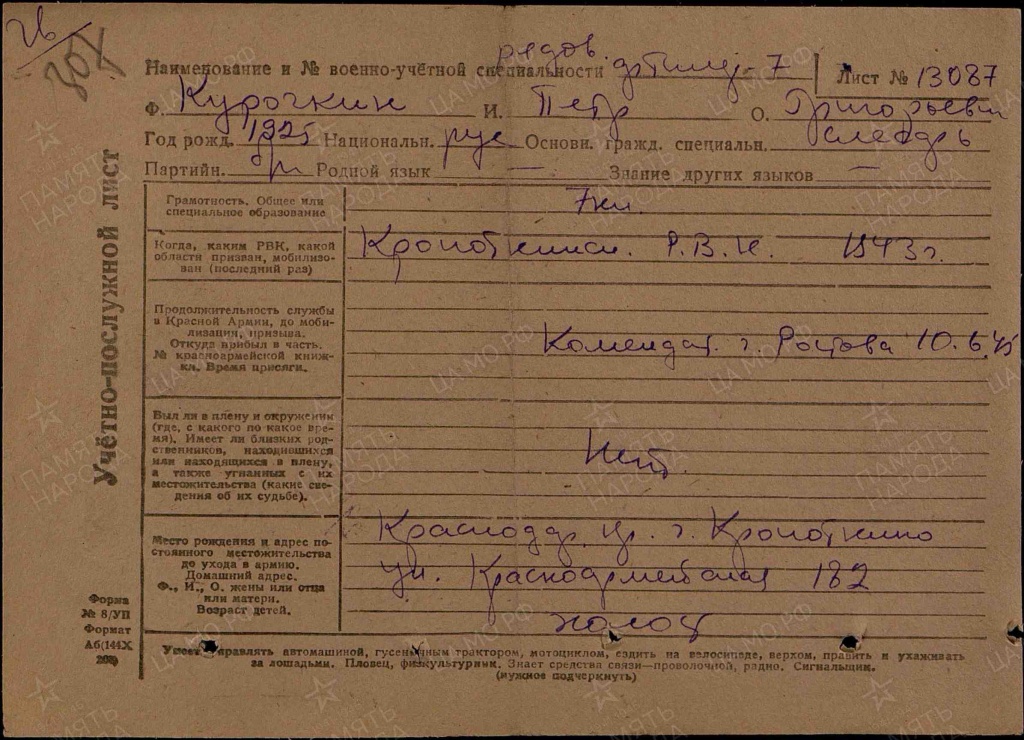 рядов.
Наименование и № военно-учётной специальности -7 Лист № 13087
Ф. Курочкин И. Петр О. Григорьевич
Год рожд. 1925 Национальн. рус Основн. гражд. специальн. слесарь
Партийн. б/п Родной язык — Знание других языков —
Учётно-послужной лист
Грамотность. Общее или
специальное образование
7кл.
Когда, каким РВК, какой
области призван, мобилизо-
ван (последний раз)
Кропоткинск. Р.В.К. 1943г.
Продолжительность службы
в Красной Армии, до моби-
лизации, призыва.
Откуда прибыл в часть.
№ красноармейской книж-
ки. Время присяги.
Комендат. г. Ростова 10.6.45
Был ли в плену и окружении
(где, с какого по какое вре-
мя). Имеет ли близких род-
ственников, находившихся
или находящихся в плену,
а также угнанных с их
местожительства (какие све-
дения об их судьбе).
Нет.
Место рождения и адрес по-
стоянного местожительства
до ухода в армию.
Домашний адрес.
Ф., И., О. жены или отца
или матери.
Возраст детей.
Краснодар. кр. г. Кропоткино
ул. Красноармейская 182
холост
Форма
№ 8/УП
Формат
А6(144X
203)
Умеет управлять автомашиной, гусеничным трактором, мотоциклом, ездить на велосипеде, верхом, править и ухаживать
за лошадьми. Пловец, физкультурник. Знает средства связи—проволочной, радио. Сигнальщик.
(нужное подчеркнуть)
ПАМЯТЬ НАРОДА
ЦАМО.РФ